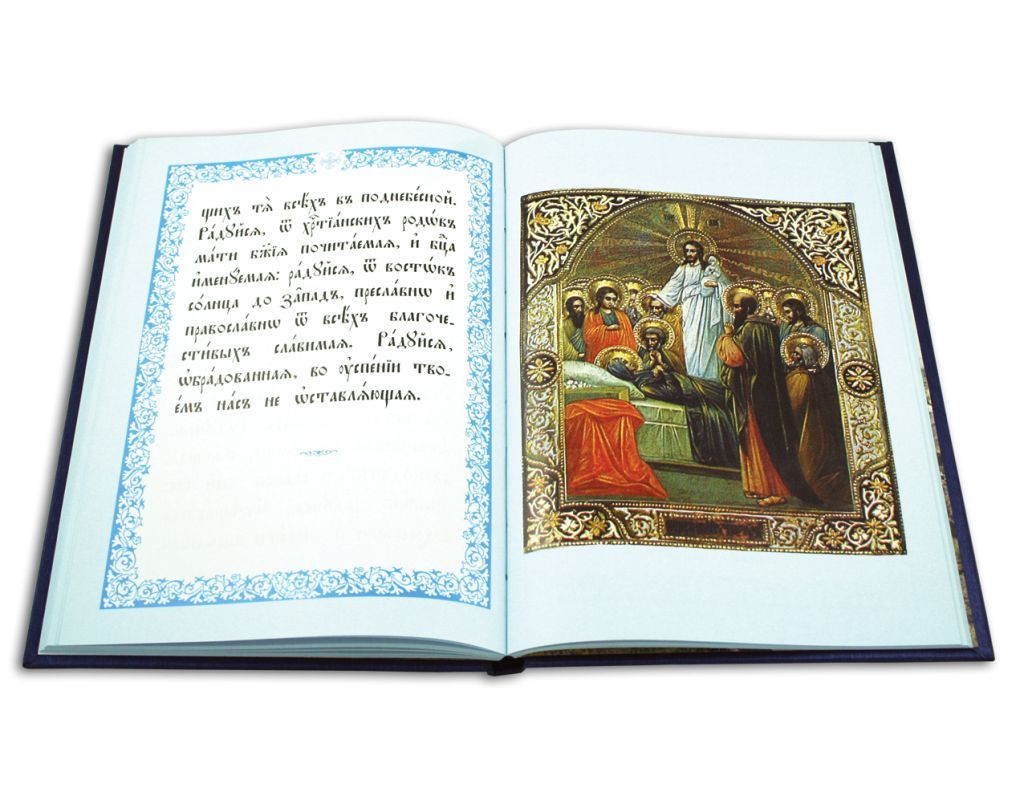 щихъ тѧ̀ всѣ́хъ въ поднебе́сной.
Ра́дуйсѧ, ѿ хрⷭ҇тїа́нскихъ родѡ́въ
мати бж҃їѧ почита́емаѧ, и҆ бц҃а
и҆менꙋ́емаѧ: ра́дꙋйсѧ, ѿ восто́къ
со́лнца до за́падъ, пресла́внѡ и҆
правосла́внѡ ѿ всѣ́хъ благоче-
сти́выхъ сла́вимаѧ. Ра́дꙋйсѧ,
ѡ҆бра́дованнаѧ, во ᲂу҆спе́нїи тво-
е́мъ на́съ не ѡ҆ставлѧ́ющаѧ.